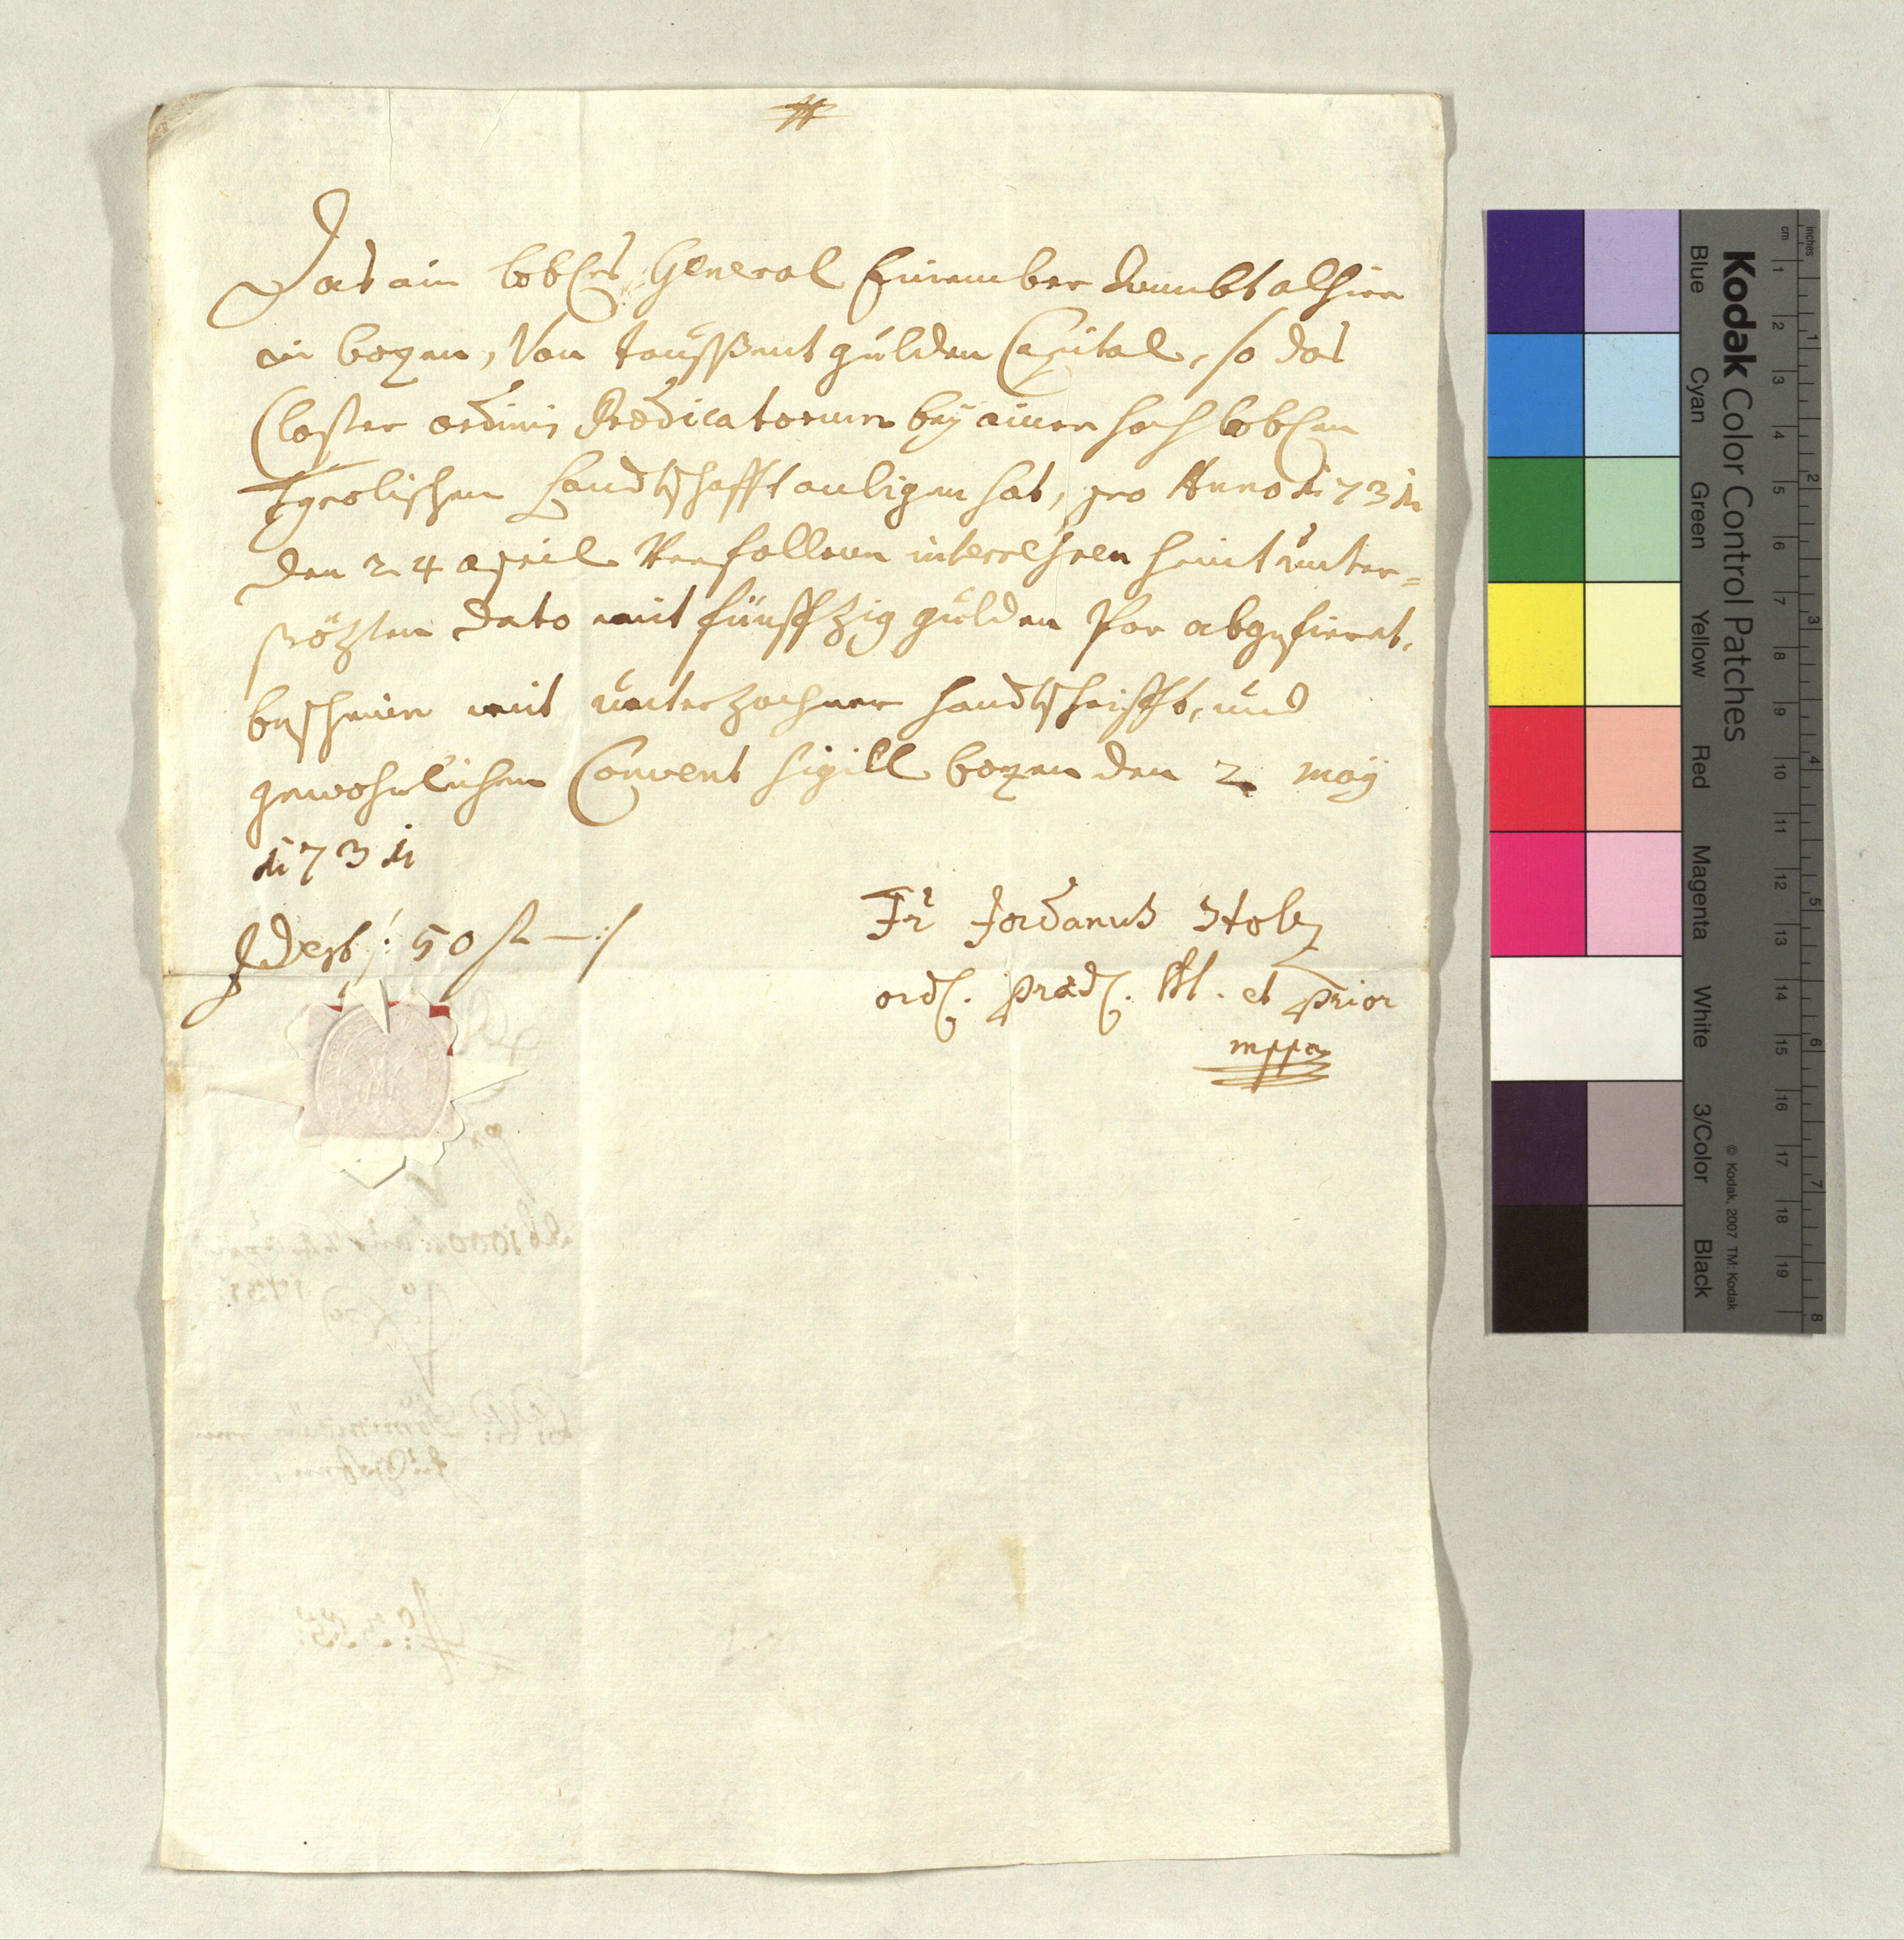 Das ain lobhes General Einember Ambt alhier
in bozen, Von taußent gulden Capital, so das
Closter ordinis Prædicatorum bey ainer hoch lobhen
Tyrolischen Landtschafft anligen hat, pro Anno 1731
den 24 april Verfallenen interehsen heint unter=
sözten dato mit fünffzig gulden Par abgefieret,
bescheine mit unterzochner handtschrifft, und
gewohnlichen Convent sigill bozen den 2 may
1731
Id est: 50 fl —:/
Fr Jordanus Stolz
ord. præd. et prior
mppa
Kodak Color Control Patches
© Kodak, 2007 TM: Kodak
Blue Cyan Green Yellow Red Magenta White 3/Color Black
cm 1 2 3 4 5 6 7 8 9 10 11 12 13 14 15 16 17 18 19
inches 1 2 3 4 5 6 7 8